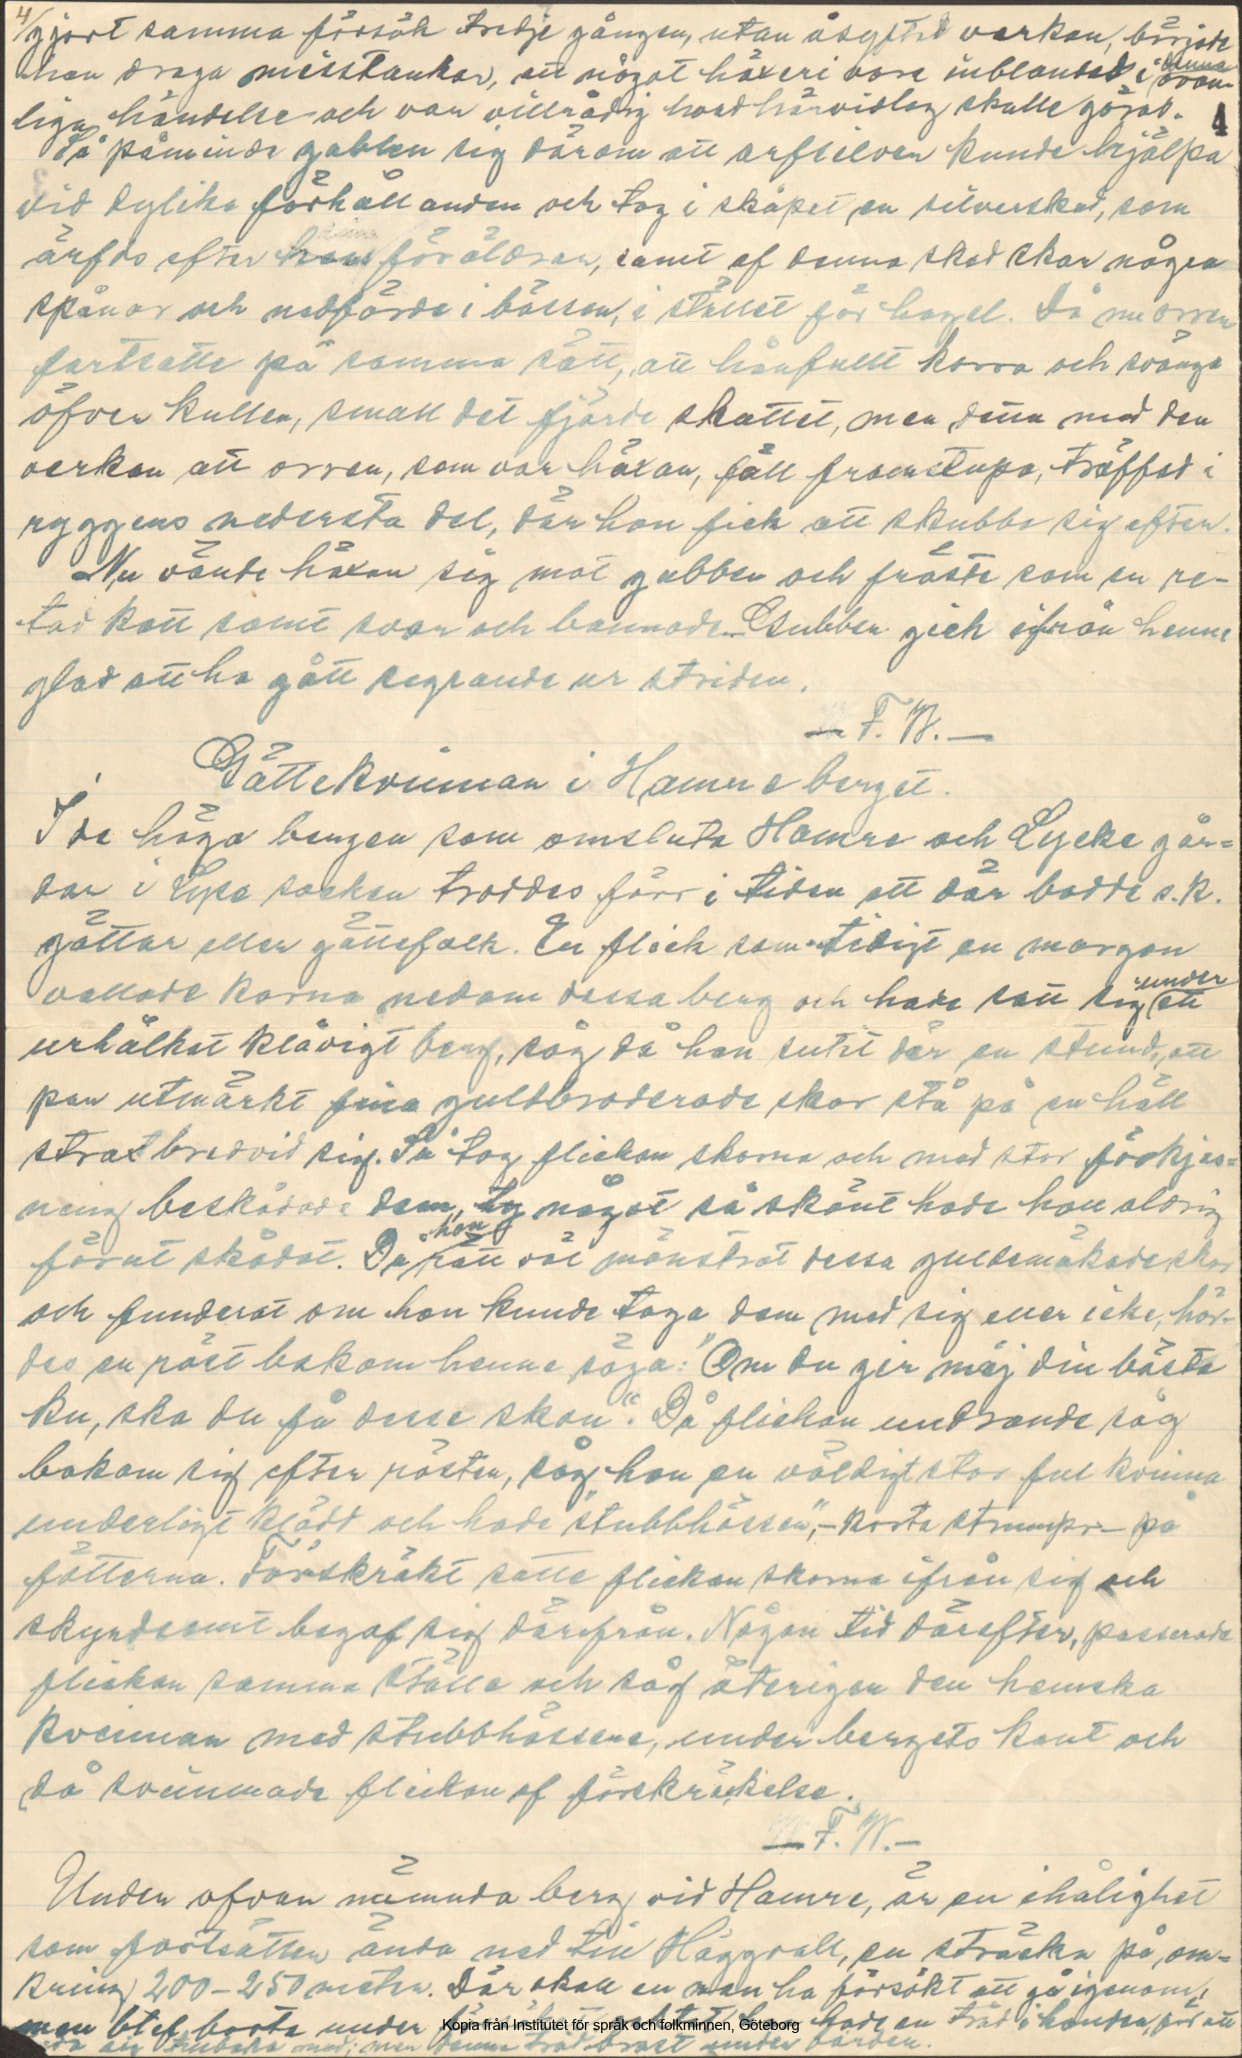 4/
gjort samma försök tredje gången, utan åsyftad verkan, började
han draga misstankar, att något häxeri vore inblandad i denna ovan-
liga händelse och var villrådig hvad härvidlag skulle göras.
4
Då påminde gubben sig därom att arfsilver kunde hjälpa
vid dylika förhållanden och tog i skåpet en silfversked, som
ärfds efter sina föräldrar, samt af denna sked skar några
spånor och nedförde i bössen, i stället för hagel. Då nu orren
fortsatte på samma sätt, att hånfullt korra och svänga
öfver kullen, small det fjärde skottet, men detta med den
verkan att orren, som var häxan, föll framstupa, träffad i
ryggens nedersta del, där hon fick att skubba sig efter.
Nu vände häxan sig mot gubben och fräste som en re-
tad katt samt svor och bannade. Gubben gick ifrån henne
glad att ha gått segrande ur striden.
— F. W. —
Gättekvinnan i Hamreberget.
I de höga bergen som omsluta Hamre och Lycke går-
dar i Lyse socken troddes förr i tiden att där bodde s.k.
gättar eller gättefolk. En flick som tidigt en morgon
vallade korna nedom dessa berg och hade satt sig under ett
urhålkat klåvigt berg, såg då hon sutit där en stund, ett
par utmärkt fina guldbroderade skor stå på en häll
strax bredvid sig. Så tog flickan skorna och med stor förtjus-
ning beskådade dem, ty något så skönt hade hon aldrig
förut skådat. Då hon rätt väl mönstrat dessa guldsmakade skor
och funderat om hon kunde taga dem med sig eller icke, hör-
des en röst bakom henne säga: "Om du ger mäj din bästa
ku, ska du få desse skon". Då flickan undrande såg
bakom sig efter rösten, såg hon en väldigt stor ful kvinna
underligt klädd och hade "stubbhässer", – korta strumpor – på
fötterna. Förskräkt satte flickan skorna ifrån sig och
skyndsamt begaf sig därifrån. Någon tid därefter, passerade
flickan samma ställe och såg återigen den hemska
kvinnan med stubbhässene, under bergets kant och
då svimmade flickan af förskräckelse.
— F. W. —
Under ofvan nämnda berg vid Hamre, är en ihålighet
som fortsätter ända ned till Häggvall, en sträcka på om-
kring 200–250 meter. Där skall en man ha försökt att gå igenom,
men blef borta under hade en tråd i handen, för att
tillbaka med; men denna tråd brast under färden.
Kopia från Institutet för språk och folkminnen, Göteborg